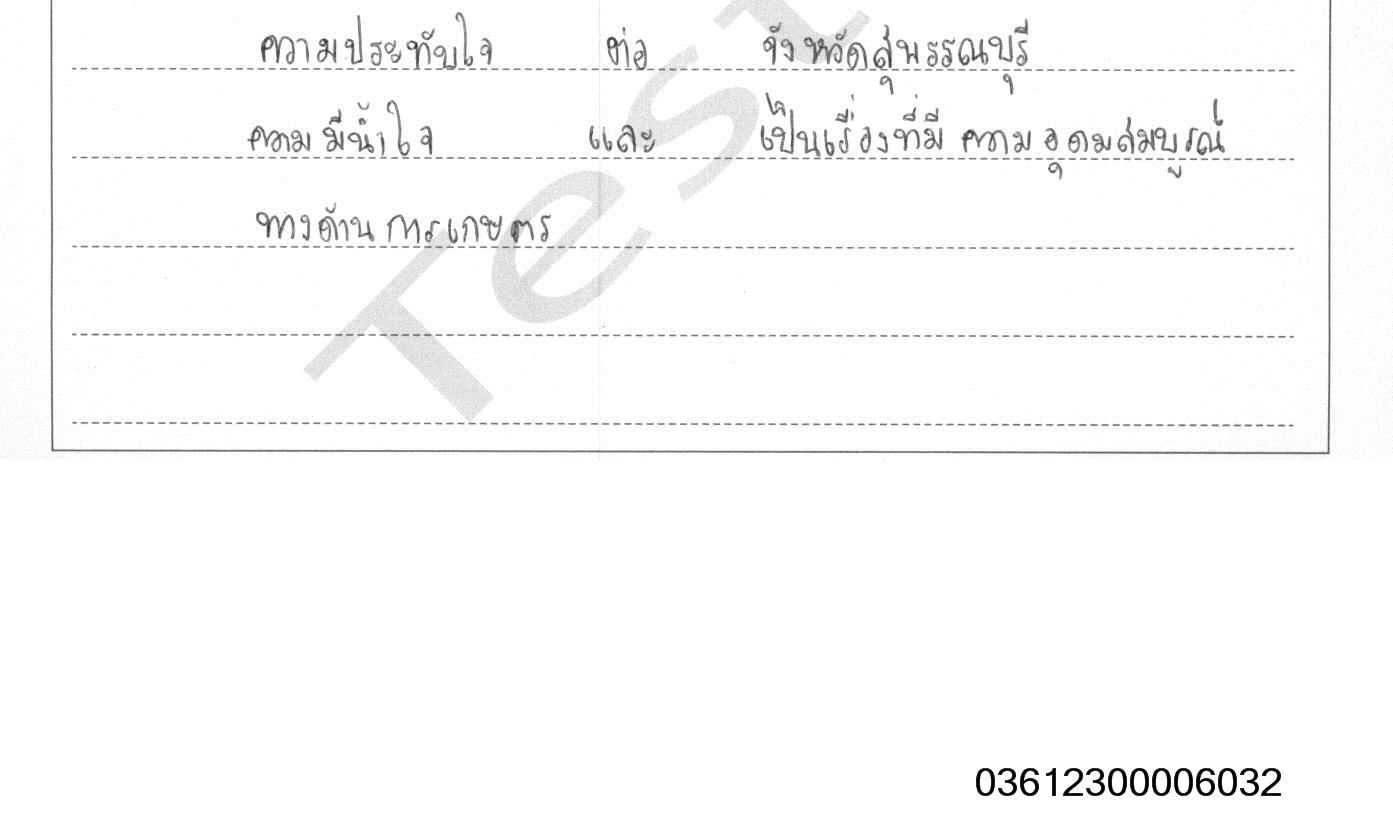 ความประทับใจ ต่อ จังหวัดสุพรรณบุรี
ความมีน้ำใจ และ เป็นเรื่องที่มี ความอุดมสมบูรณ์
ทางด้าน การเกษตร
Test
03612300006032